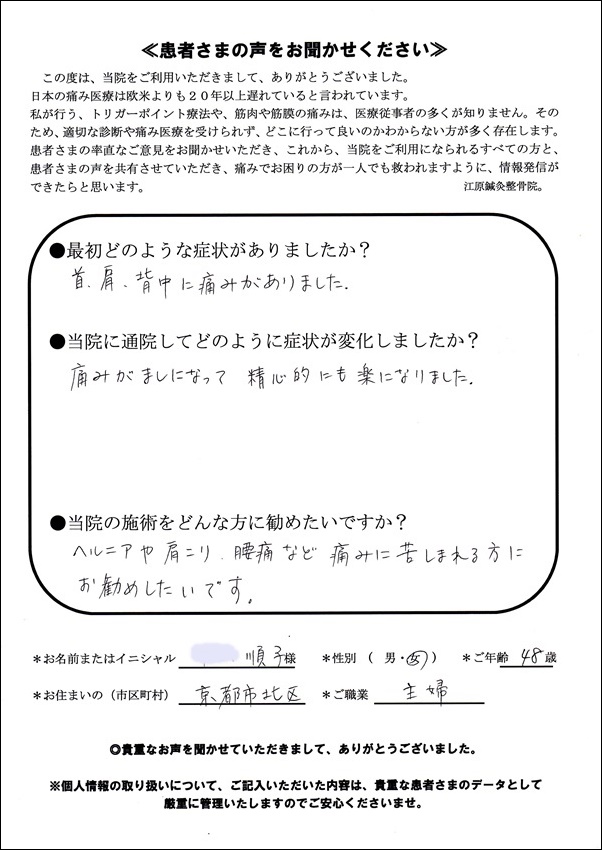 ≪患者さまの声をお聞かせください≫
この度は、当院をご利用いただきまして、ありがとうございました。
日本の痛み医療は欧米よりも２０年以上遅れていると言われています。
私が行う、トリガーポイント療法や、筋肉や筋膜の痛みは、医療従事者の多くが知りません。その
ため、適切な診断や痛み医療を受けられず、どこに行って良いのかわからない方が多く存在します。
患者さまの率直なご意見をお聞かせいただき、これから、当院をご利用になられるすべての方と、
患者さまの声を共有させていただき、痛みでお困りの方が一人でも救われますように、情報発信が
できたらと思います。 江原鍼灸整骨院。
●最初どのような症状がありましたか？
首、肩、背中に痛みがありました.
●当院に通院してどのように症状が変化しましたか？
痛みがましになって 精心的にも楽になりました.
●当院の施術をどんな方に勧めたいですか？
ヘルニアや肩こり、腰痛など痛みに苦しまれる方に
お勧めしたいです。
＊お名前またはイニシャル 順子様 ＊性別（ 男・女 ） ＊ご年齢 48歳
＊お住まいの（市区町村） 京都市北区 ＊ご職業 主婦
◎貴重なお声を聞かせていただきまして、ありがとうございました。
※個人情報の取り扱いについて、ご記入いただいた内容は、貴重な患者さまのデータとして
厳重に管理いたしますのでご安心くださいませ。